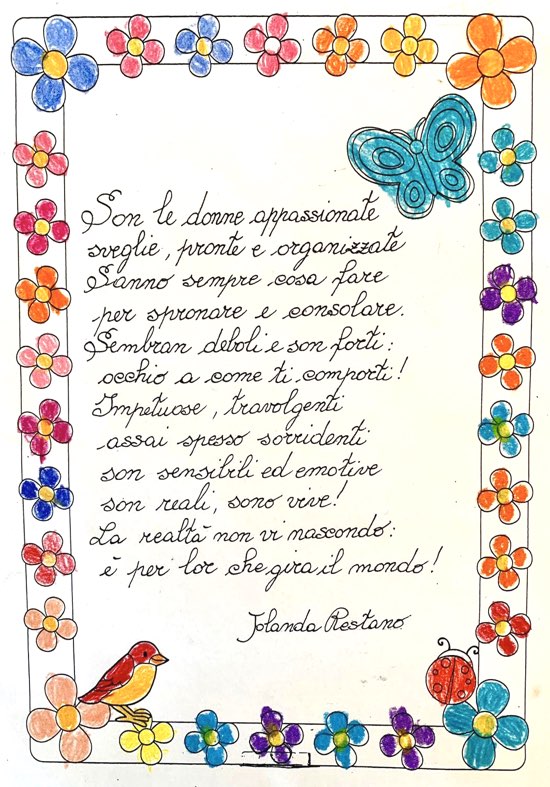 Son le donne appassionate
sveglie, pronte e organizzate
Sanno sempre cosa fare
per spronare e consolare.
Sembran deboli e son forti:
occhio a come ti comporti!
Impetuose, travolgenti
assai spesso sorridenti
son sensibili ed emotive
son reali, sono vive!
La realtà non vi nascondo:
è per lor che gira il mondo!
Jolanda Restano